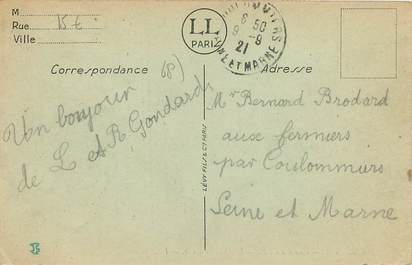 M
Rue 15 €
Ville
LL
PARIS
6 50
9 - 9
21
ET MARNE
Correspondance
(8)
Adresse
Un bonjour
de L et R Gondard
LÉVY FILS & Cie PARIS
Mr Bernard Brodard
aux fermiers
par Coulommiers
Seine et Marne